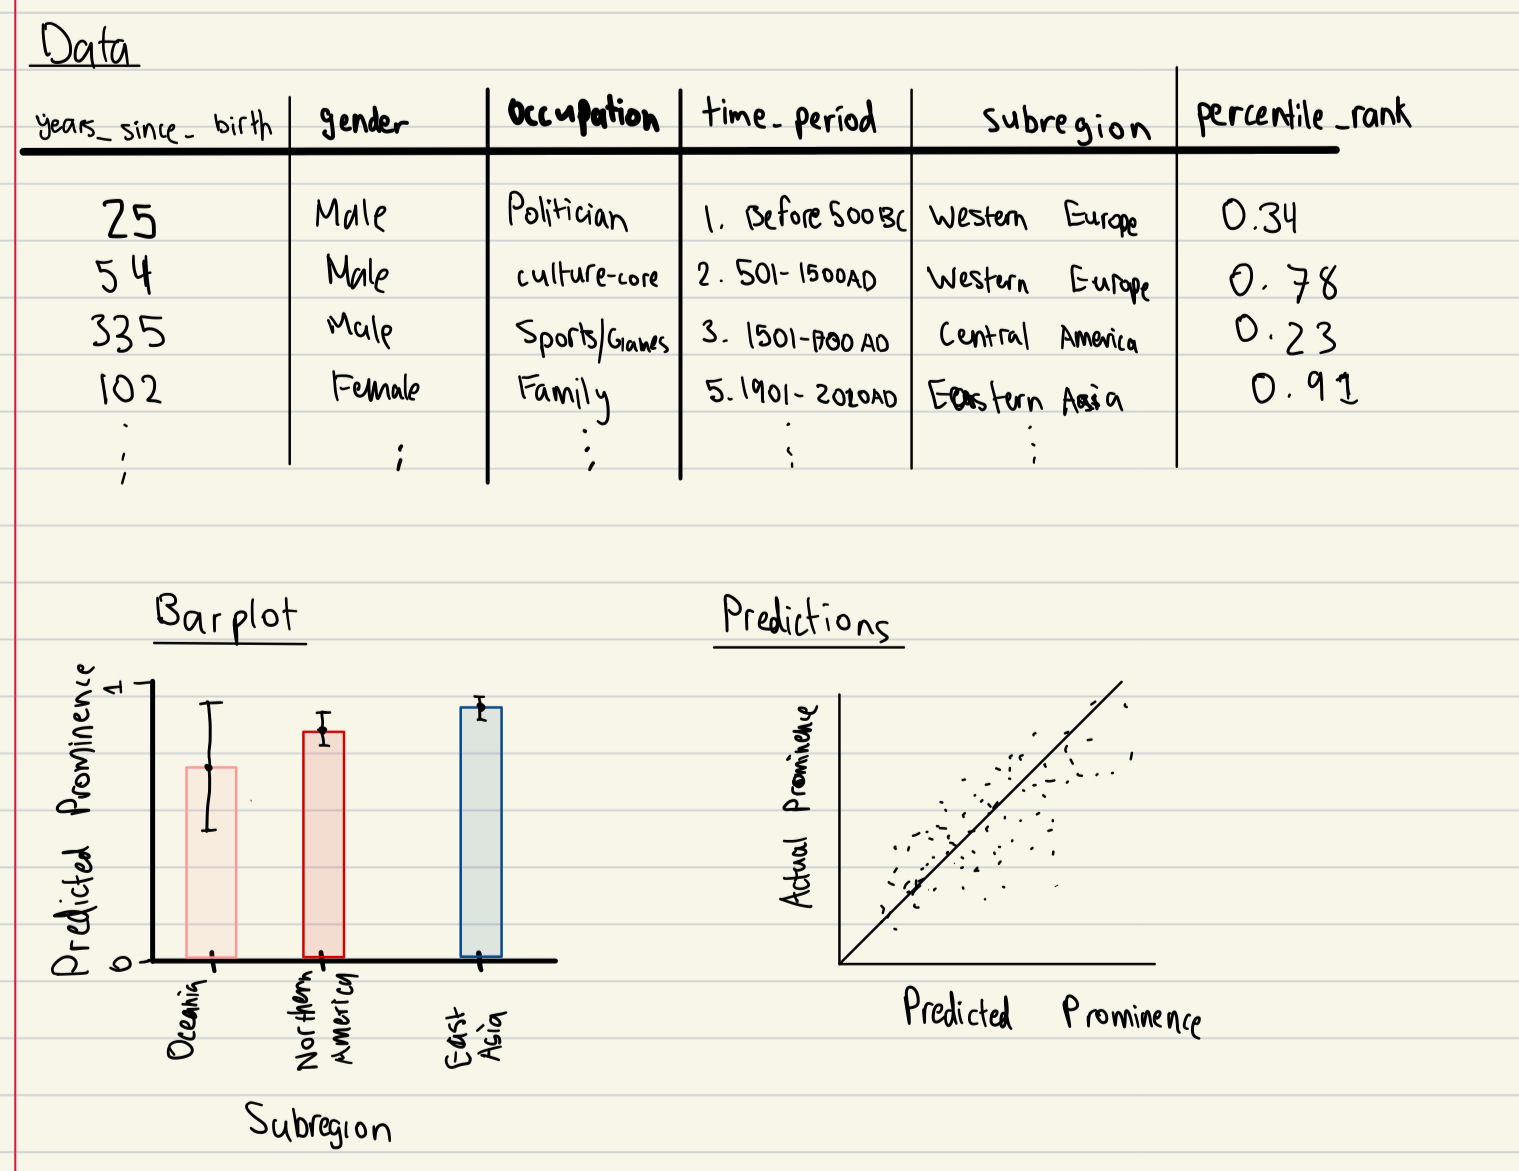 Data
years_since_birth gender occupation time_period subregion percentile_rank
25 Male Politician 1. Before 500BC Western Europe 0.34
54 Male culture-core 2. 501-1500AD Western Europe 0.78
335 Male Sports/Games 3. 1501-1700 AD Central America 0.23
102 Female Family 5. 1901-2020AD Eastern Asia 0.91
Barplot
Predicted Prominence
1
0
Oceania
Northern
America
East
Asia
Subregion
Predictions
Actual Prominence
Predicted Prominence